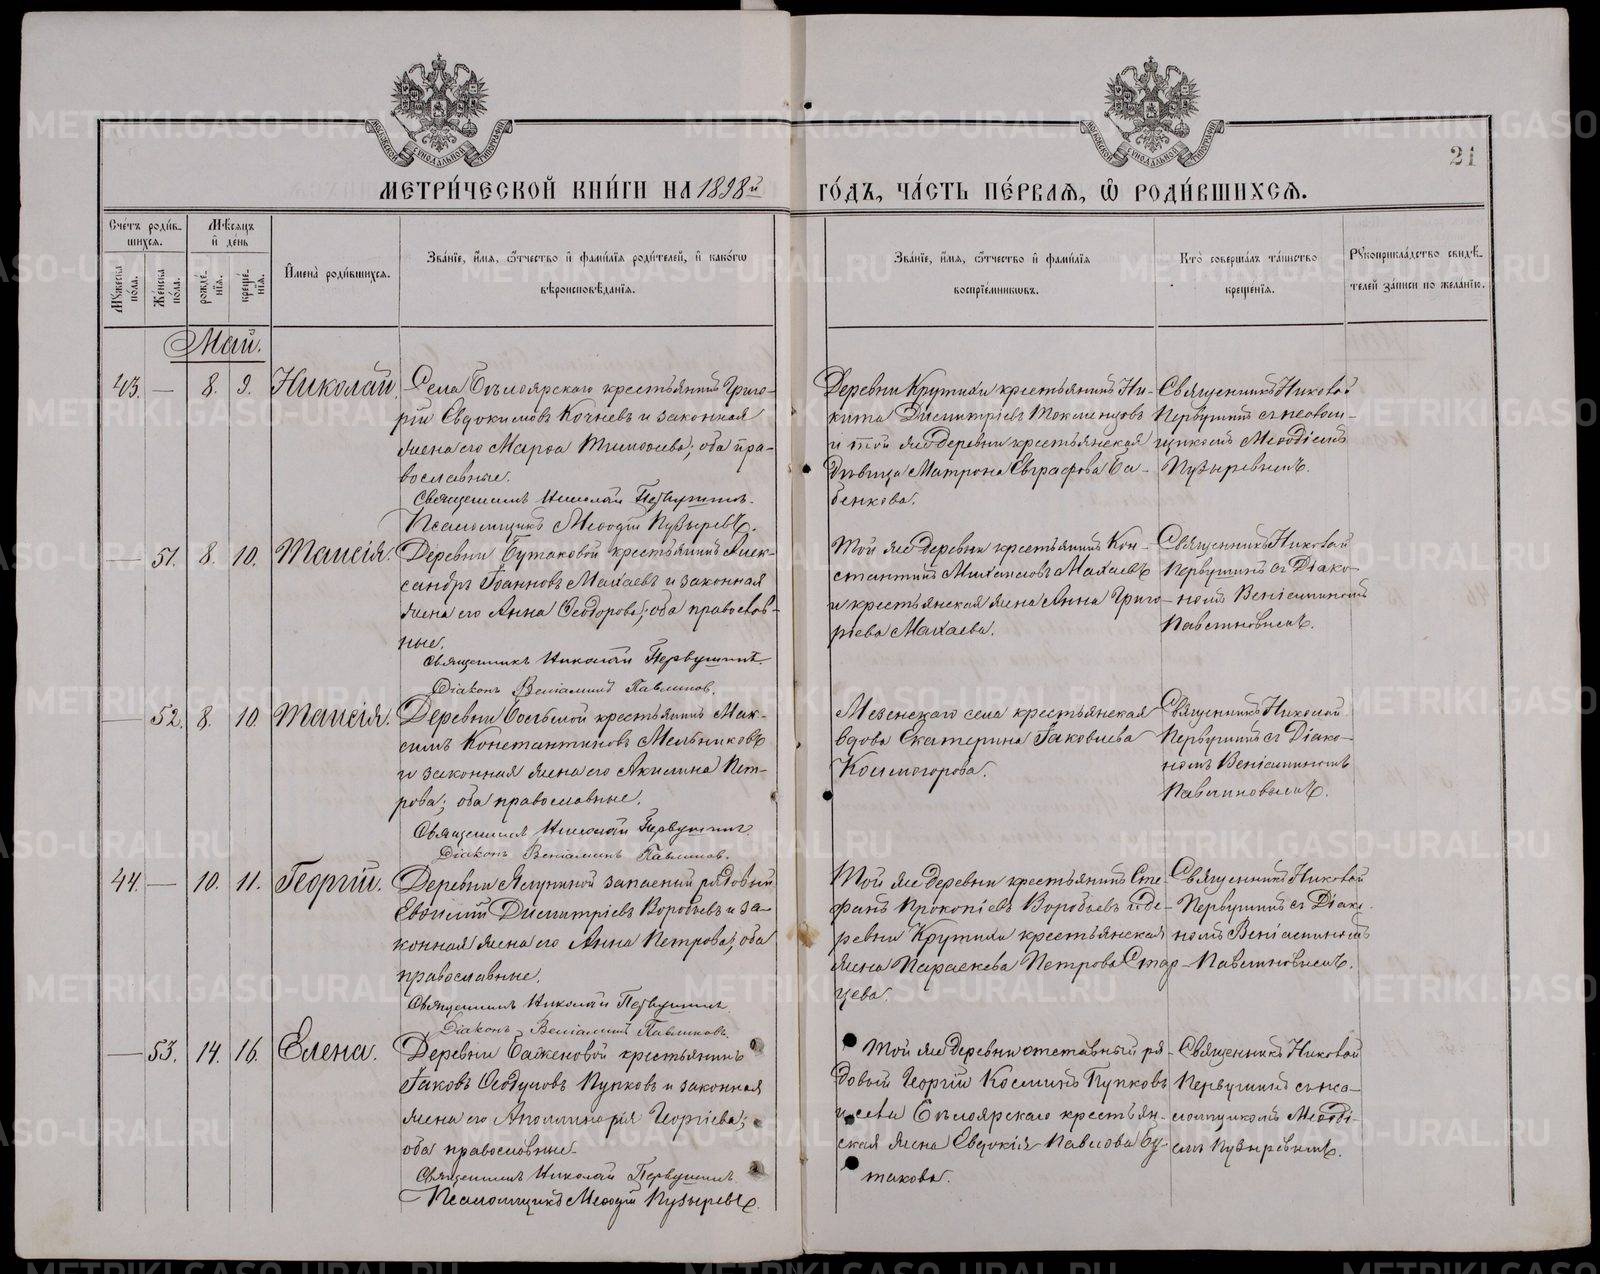 МОСКОВСКОЙ СѴНОДАЛЬНОЙ ТИПОГРАФІИ
МОСКОВСКОЙ СѴНОДАЛЬНОЙ ТИПОГРАФІИ
21
МЕТРИ́ЧЕСКОЙ КНИ́ГИ НА 1898й
ГО́ДЪ, ЧА́СТЬ ПЕ́РВАѦ, Ѽ РОДИ́ВШИХСѦ.
Сче́тъ роди́в-
шихсѧ.
Мѣ́сѧцъ
и҆ де́нь
Мꙋ́жеска по́ла.
Же́нска по́ла.
рожде́-нїѧ.
креще́-нїѧ.
И҆мена̀ роди́вшихсѧ.
Зва́нїе, и҆́мѧ, ѻ҆́тчество и҆ фамѝлїѧ роди́телей, и҆ како́гѡ
вѣроисповѣ́данїѧ.
Зва́нїе, и҆́мѧ, ѻ҆́тчество и҆ фамѝлїѧ
воспрїе́мникѡвъ.
Кто̀ соверша́лъ та́инство
креще́нїѧ.
Рꙋкоприкла́дство свидѣ́-
телей за́писи по жела́нїю.
Май.
43. — 8. 9. Николай.
Села Бѣлоярскаго крестьянинъ Григо-
рій Евдокимовъ Кочневъ и законная
жена его Марѳа Тимоѳеева; оба пра-
вославные.
Священникъ Николай Первушинъ.
Псаломщикъ Меѳодій Пузыревъ.
Деревни Крутихи крестьянинъ Ни-
кита Димитріевъ Токменцовъ
и той же деревни крестьянская
дѣвица Матрона Евграфова Ба-
бенкова.
Священникъ Николай
Первушинъ съ псалом-
щикомъ Меѳодіемъ
Пузыревымъ.
— 51. 8. 10. Таисія.
Деревни Бутаковой крестьянинъ Алек-
сандръ Іоанновъ Махаевъ и законная
жена его Анна Ѳеодорова; оба православ-
ные.
Священникъ Николай Первушинъ.
Діаконъ Веніаминъ Павлиновъ.
Той же деревни крестьянинъ Кон-
стантинъ Михаиловъ Махаевъ
и крестьянская жена Анна Григо-
рьева Махаева.
Священникъ Николай
Первушинъ съ Діако-
номъ Веніаминомъ
Павлиновымъ.
— 52. 8. 10. Таисія.
Деревни Большой крестьянинъ Мак-
симъ Константиновъ Мельниковъ
и законная жена его Акилина Пет-
рова; оба православные.
Священникъ Николай Первушинъ.
Діаконъ Веніаминъ Павлиновъ.
Мезенскаго села крестьянская
вдова Екатерина Іаковлева
Колмогорова.
Священникъ Николай
Первушинъ съ Діако-
номъ Веніаминомъ
Павлиновымъ.
44. — 10. 11. Георгій.
Деревни Ялуниной запасный рядовый
Евѳимій Димитріевъ Воробьевъ и за-
конная жена его Анна Петрова; оба
православные.
Священникъ Николай Первушинъ.
Діаконъ Веніаминъ Павлиновъ.
Той же деревни крестьянинъ Сте-
фанъ Прокопіевъ Воробьевъ и де-
ревни Крутихи крестьянская
жена Параскева Петрова Стар-
цева.
Священникъ Николай
Первушинъ съ Діако-
номъ Веніаминомъ
Павлиновымъ.
— 53. 14. 16. Елена.
Деревни Баженовой крестьянинъ
Іаковъ Пупковъ и законная
жена его Аполлинарія Георгіева;
оба православные.
Священникъ Николай Первушинъ.
Псаломщикъ Меѳодій Пузыревъ.
Той же деревни отставный ря-
довый Георгій Косминъ Пупковъ
и села Бѣлоярскаго крестьян-
ская жена Евдокія Павлова Бу-
такова.
Священникъ Николай
Первушинъ съ пса-
ломщикомъ Меѳоді-
емъ Пузыревымъ.
METRIKI.GASO-URAL.RU